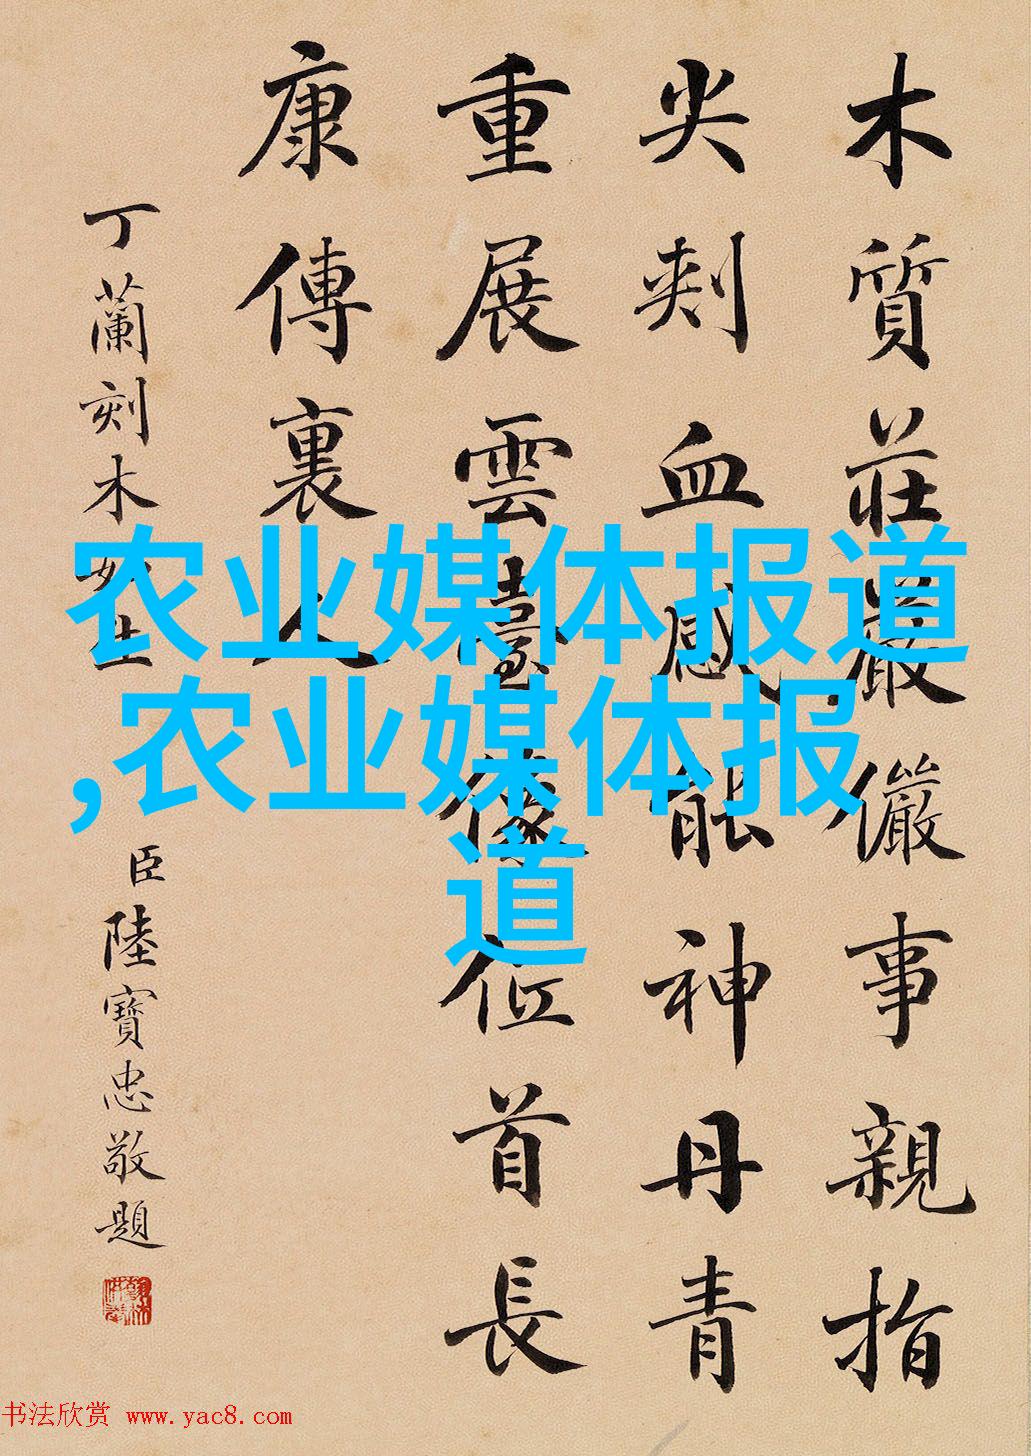 木質莊嚴儼事親指
尖刾血感能神丹青
重展雲臺像位首長
康傳裏人
丁蘭刻木如生
臣陸寶忠敬題
农业媒体报道
,农业媒体报
道
书法欣赏 www.yac8.com